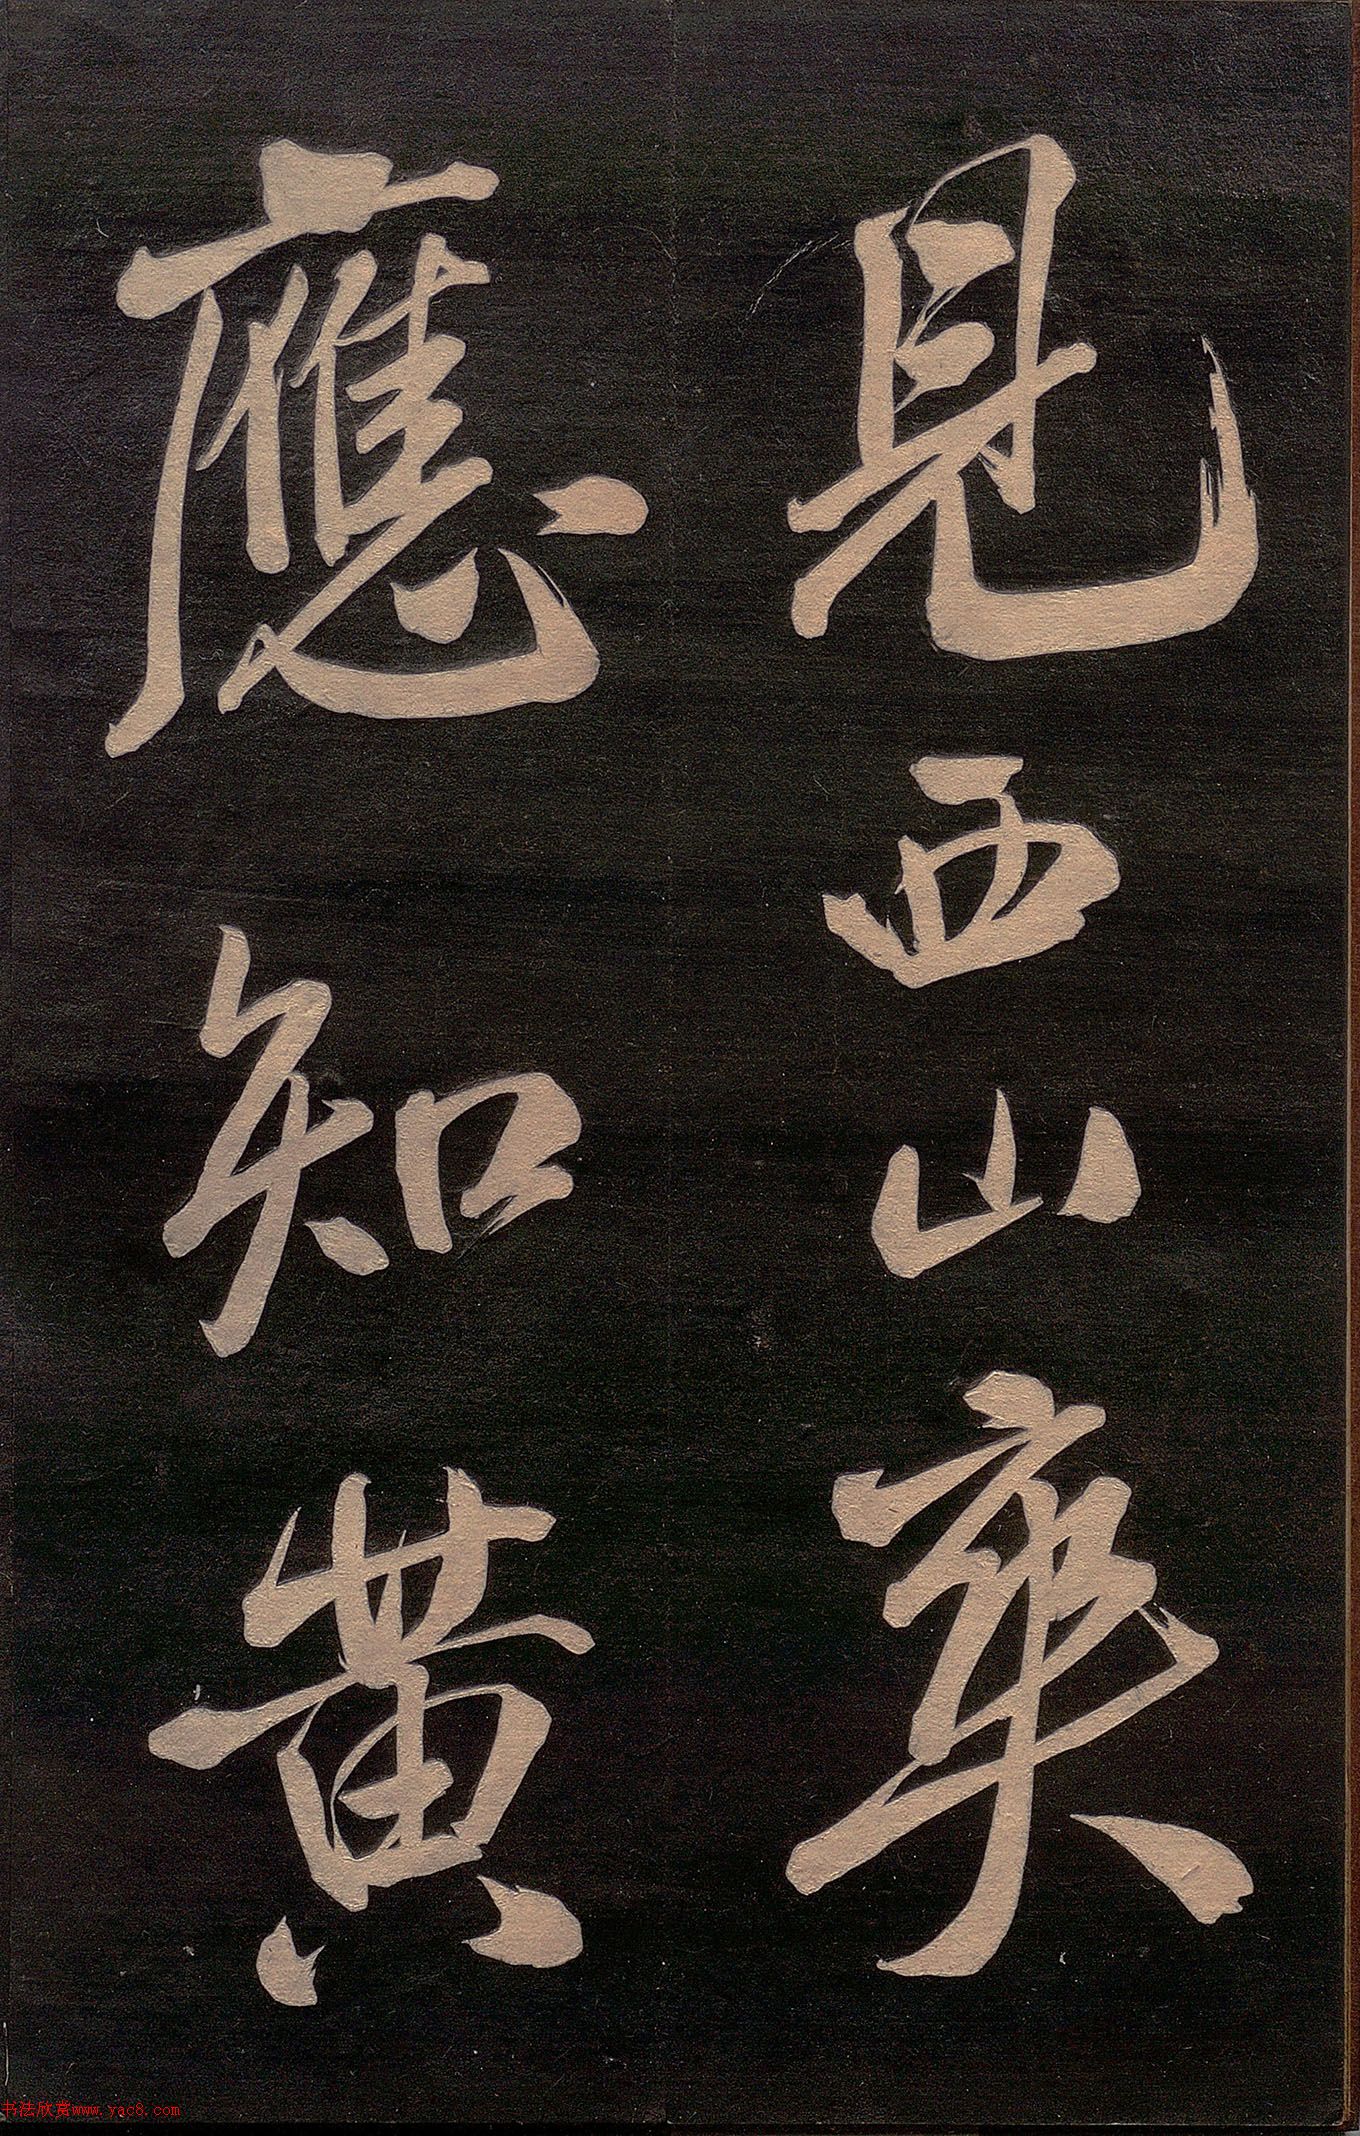 見西山爽
應知黃
书法欣赏www.yac8.com